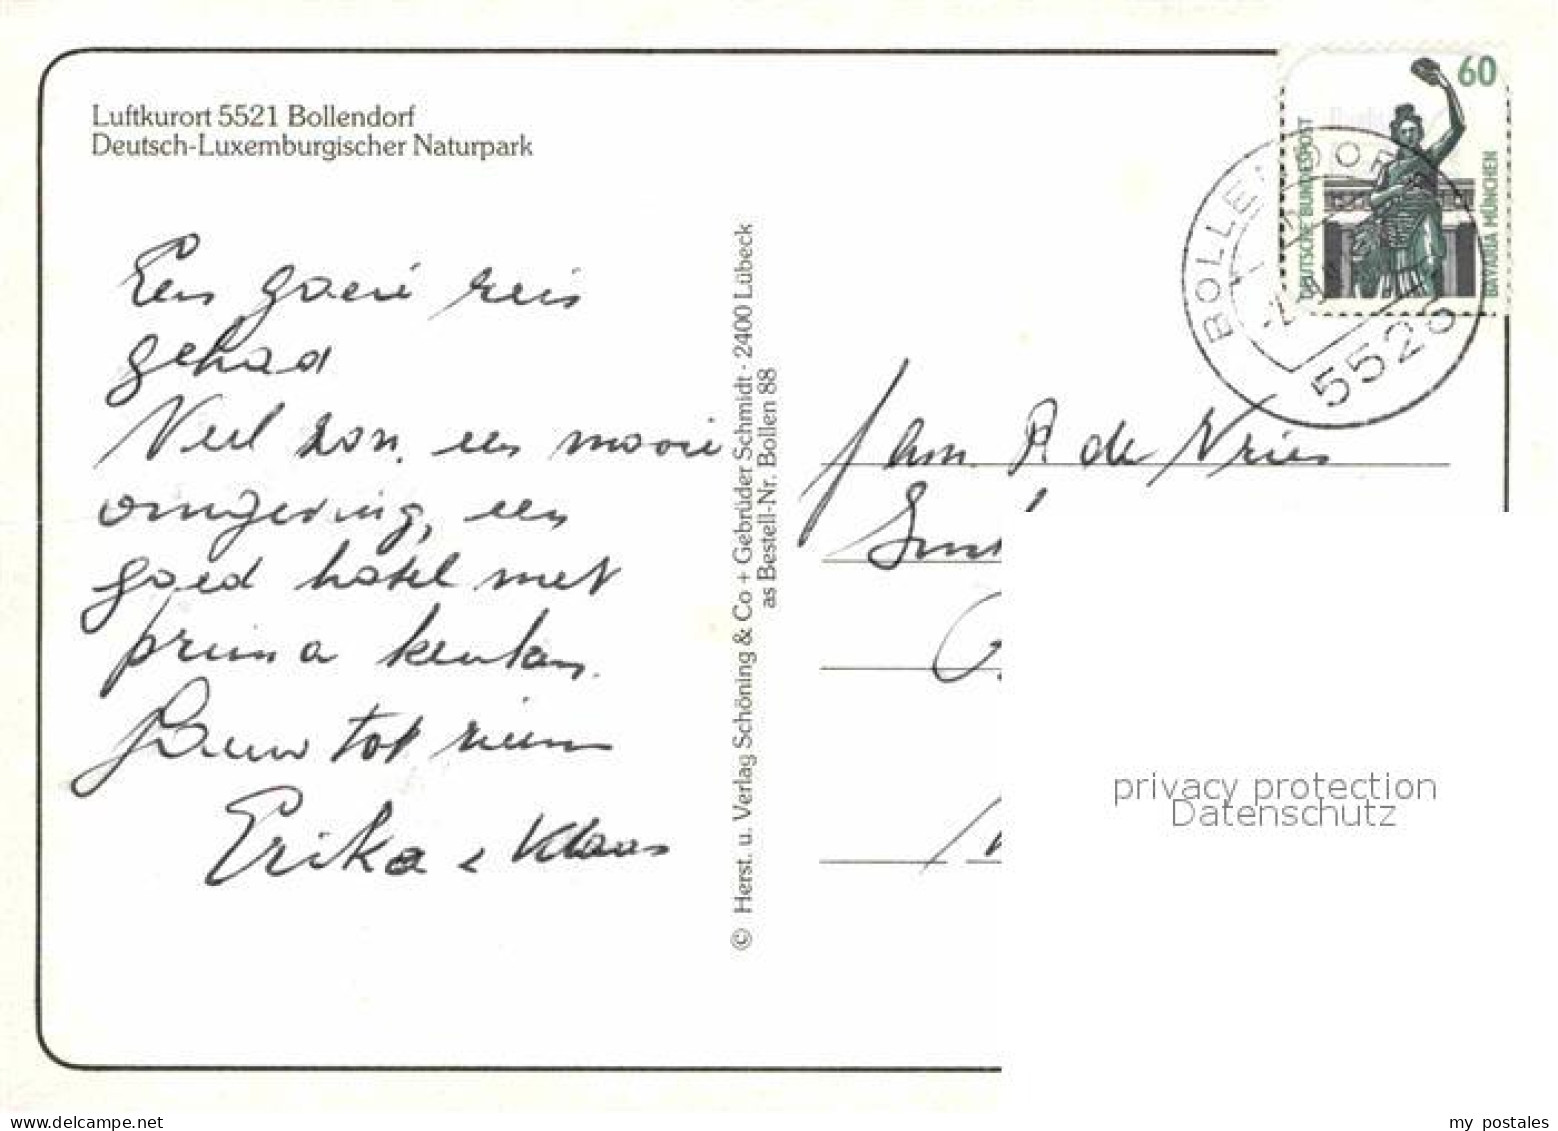 Luftkurort 5521 Bollendorf
Deutsch-Luxemburgischer Naturpark
Een goeie reis
gehad
Veel zon, een mooie
omgeving, een
goed hotel met
prima keuken.
tot ziens
Erika + Klaas
© Herst. u. Verlag Schöning & Co + Gebrüder Schmidt · 2400 Lübeck
as Bestell-Nr. Bollen 88
60
DEUTSCHE BUNDESPOST
BAVARIA MÜNCHEN
BOLLENDORF
552
fam. P. de Vries
privacy protection
Datenschutz
www.delcampe.net
my_postales